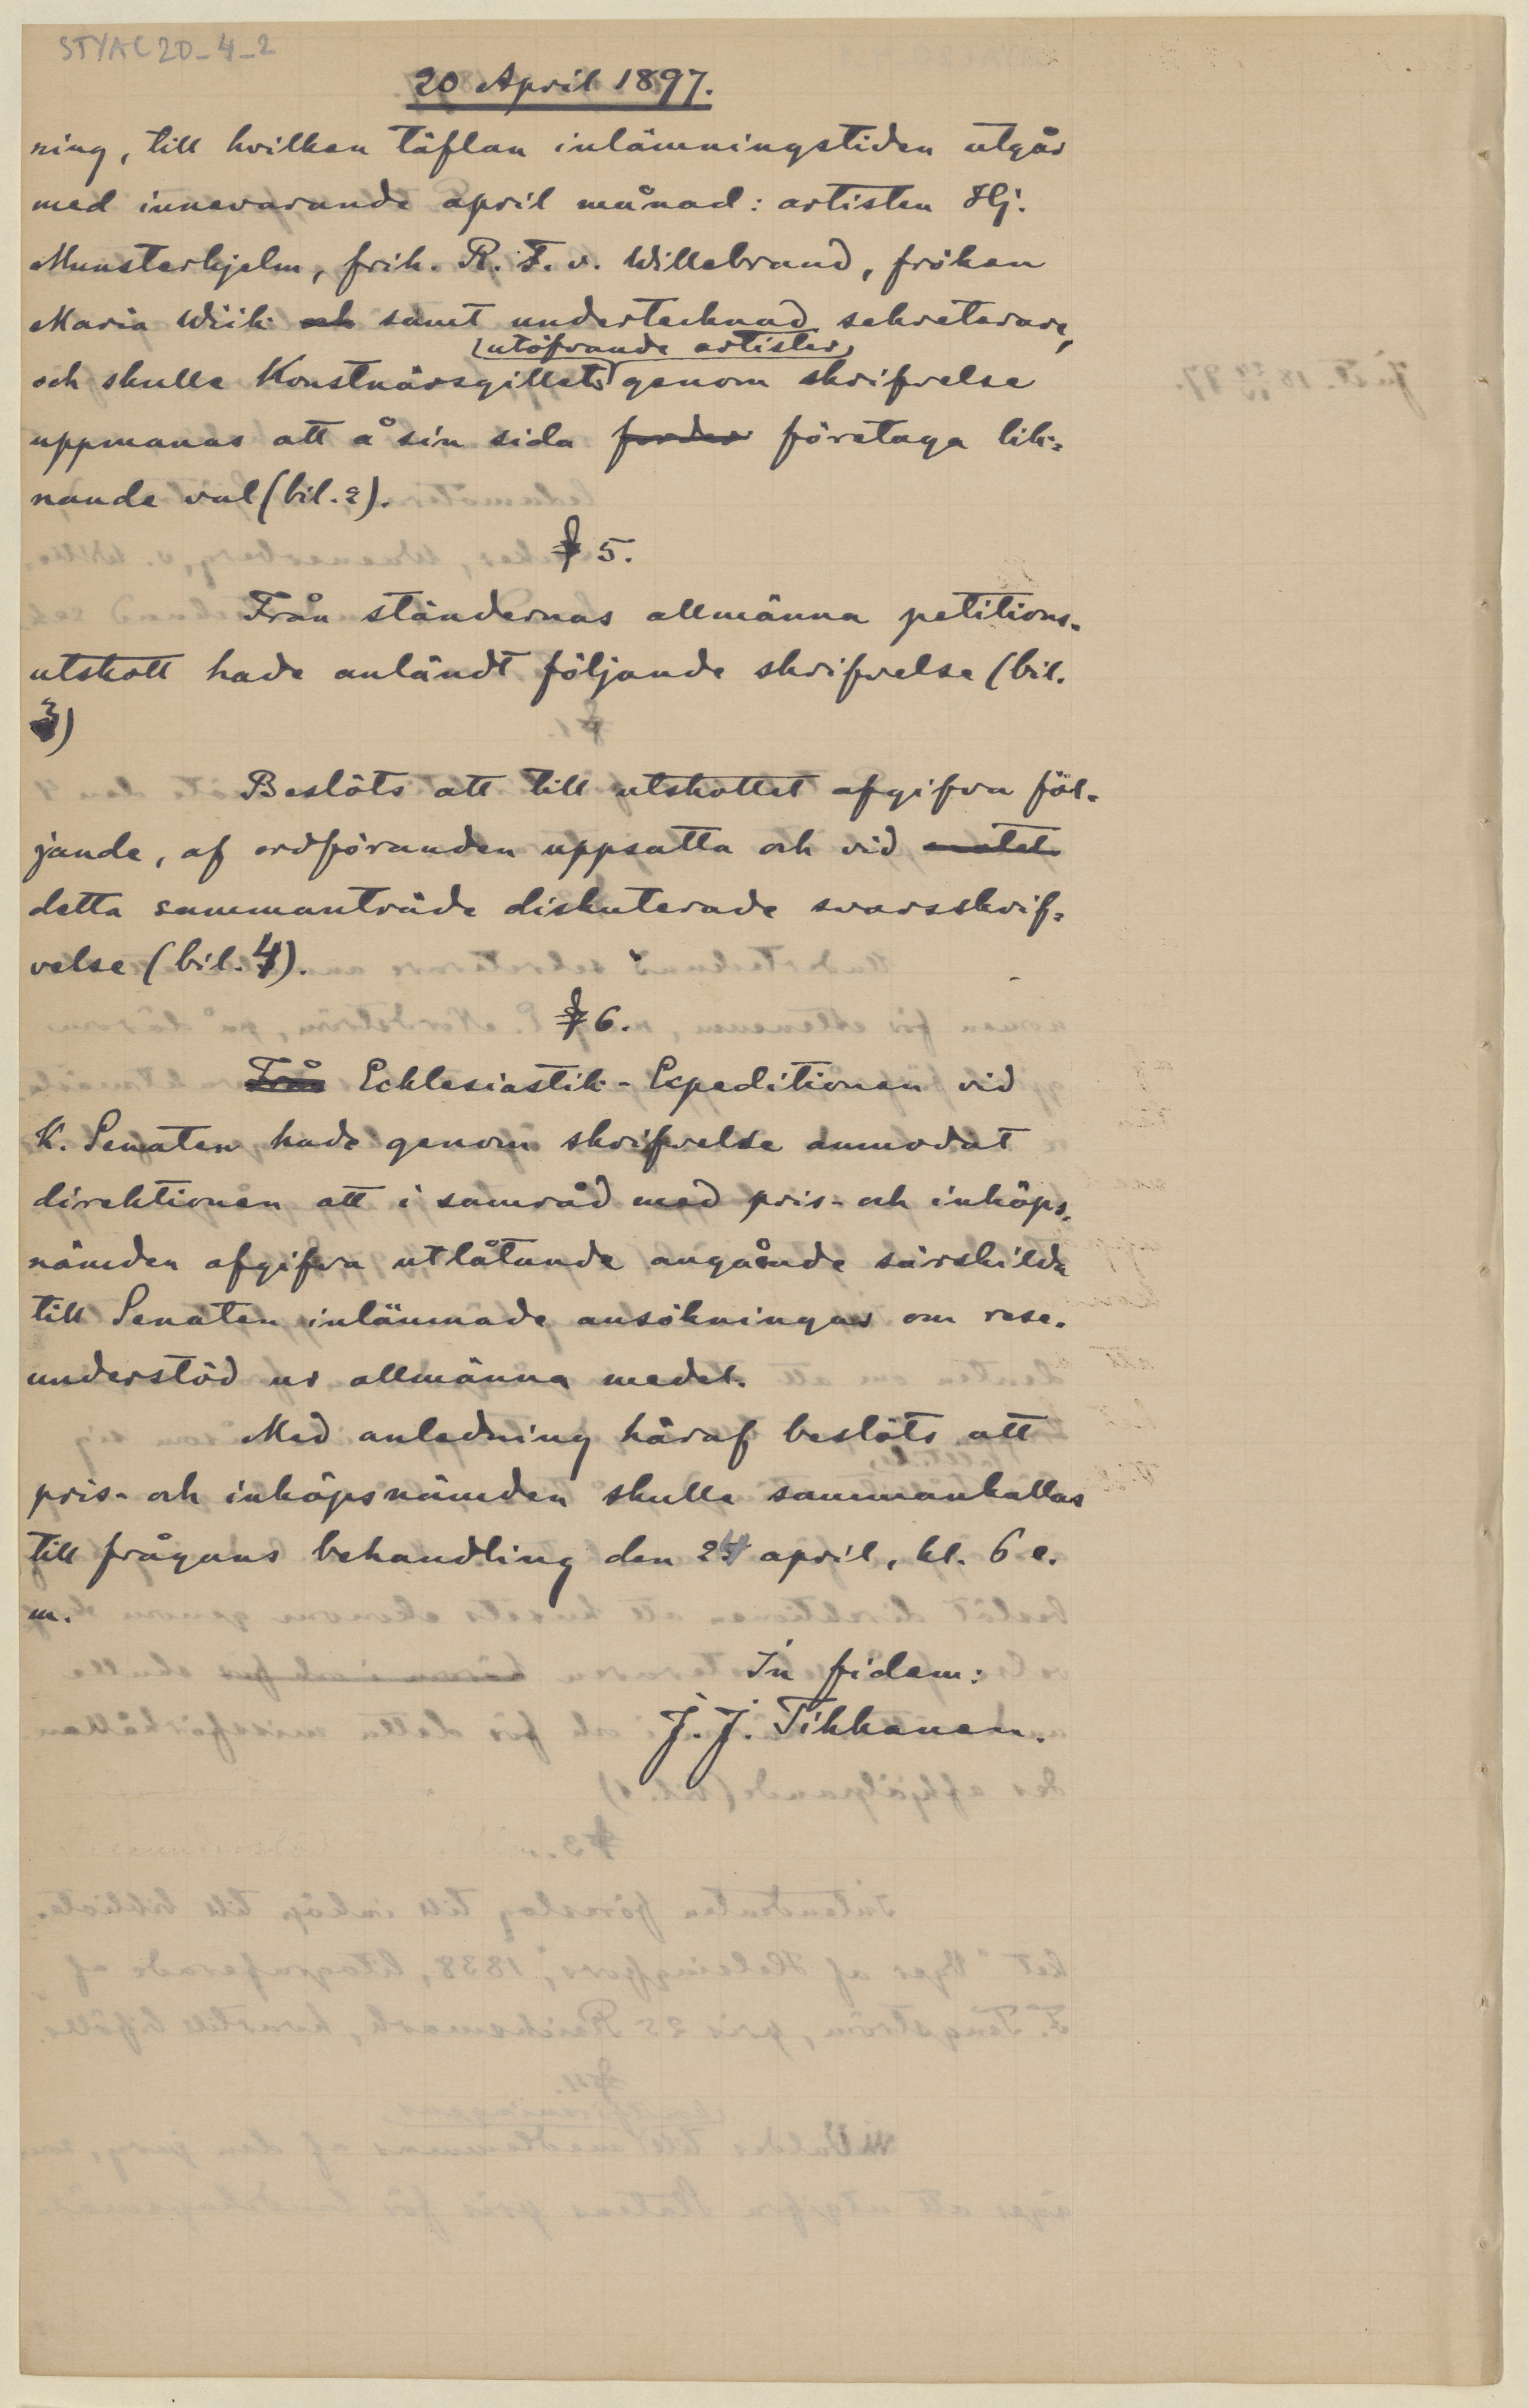 STYAC20-4-2
20 April 1897.
ning, till hvilken täflan inlämningstiden utgår
med innevarande april månad: artisten Hj.
Munsterhjelm, frih. R. F. v. Willebrand, fröken
Maria Wiik och samt undertecknad sekreterare,
utöfvande artister
och skulle Konstnärsgillets genom skrifvelse
uppmanas att å sin sida företaga lik=
nande val (bil. 2).
§ 5.
Från ständernas allmänna petitions-
utskott hade anländt följande skrifvelse (bil.
3)
Beslöts att till utskottet afgifva föl-
jande, af ordföranden uppsatta och vid mötet
detta sammanträde diskuterade svarsskrif=
velse (bil. 4).
§ 6.
Från Ecklesiastik-Expeditionen vid
K. Senaten hade genom skrifvelse anmodat
direktionen att i samråd med pris- och inköps-
nämden afgifva utlåtande angående särskilda
till Senaten inlämnade ansökningar om rese-
understöd ur allmänna medel.
Med anledning häraf beslöts att
pris- och inköpsnämden skulle sammankallas
till frågans behandling den 24 april, kl. 6 e.
m.
In fidem:
J. J. Tikkanen.